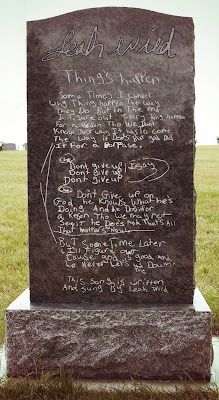 Leah Wild
Things happen
Some Times I wonder
Why Thing happen The way
They Do But In The end
I Figure out Every Thing happen
For a reason Tho We Dont
Know Just why It has to come
The way It Does But god Did
It For a Purpose.
Dont give up I say
Dont give up
Dont give up
Dont Give up on
God he Knows What he's
Doing And he Doing For
A Reason Tho we may not
See it he Does And That's All
That matters Now
But Some Time Later
I'll Figure out
Cause god is good And
he Never Let's us Down
This Song is written
And Sung By Leah Wild